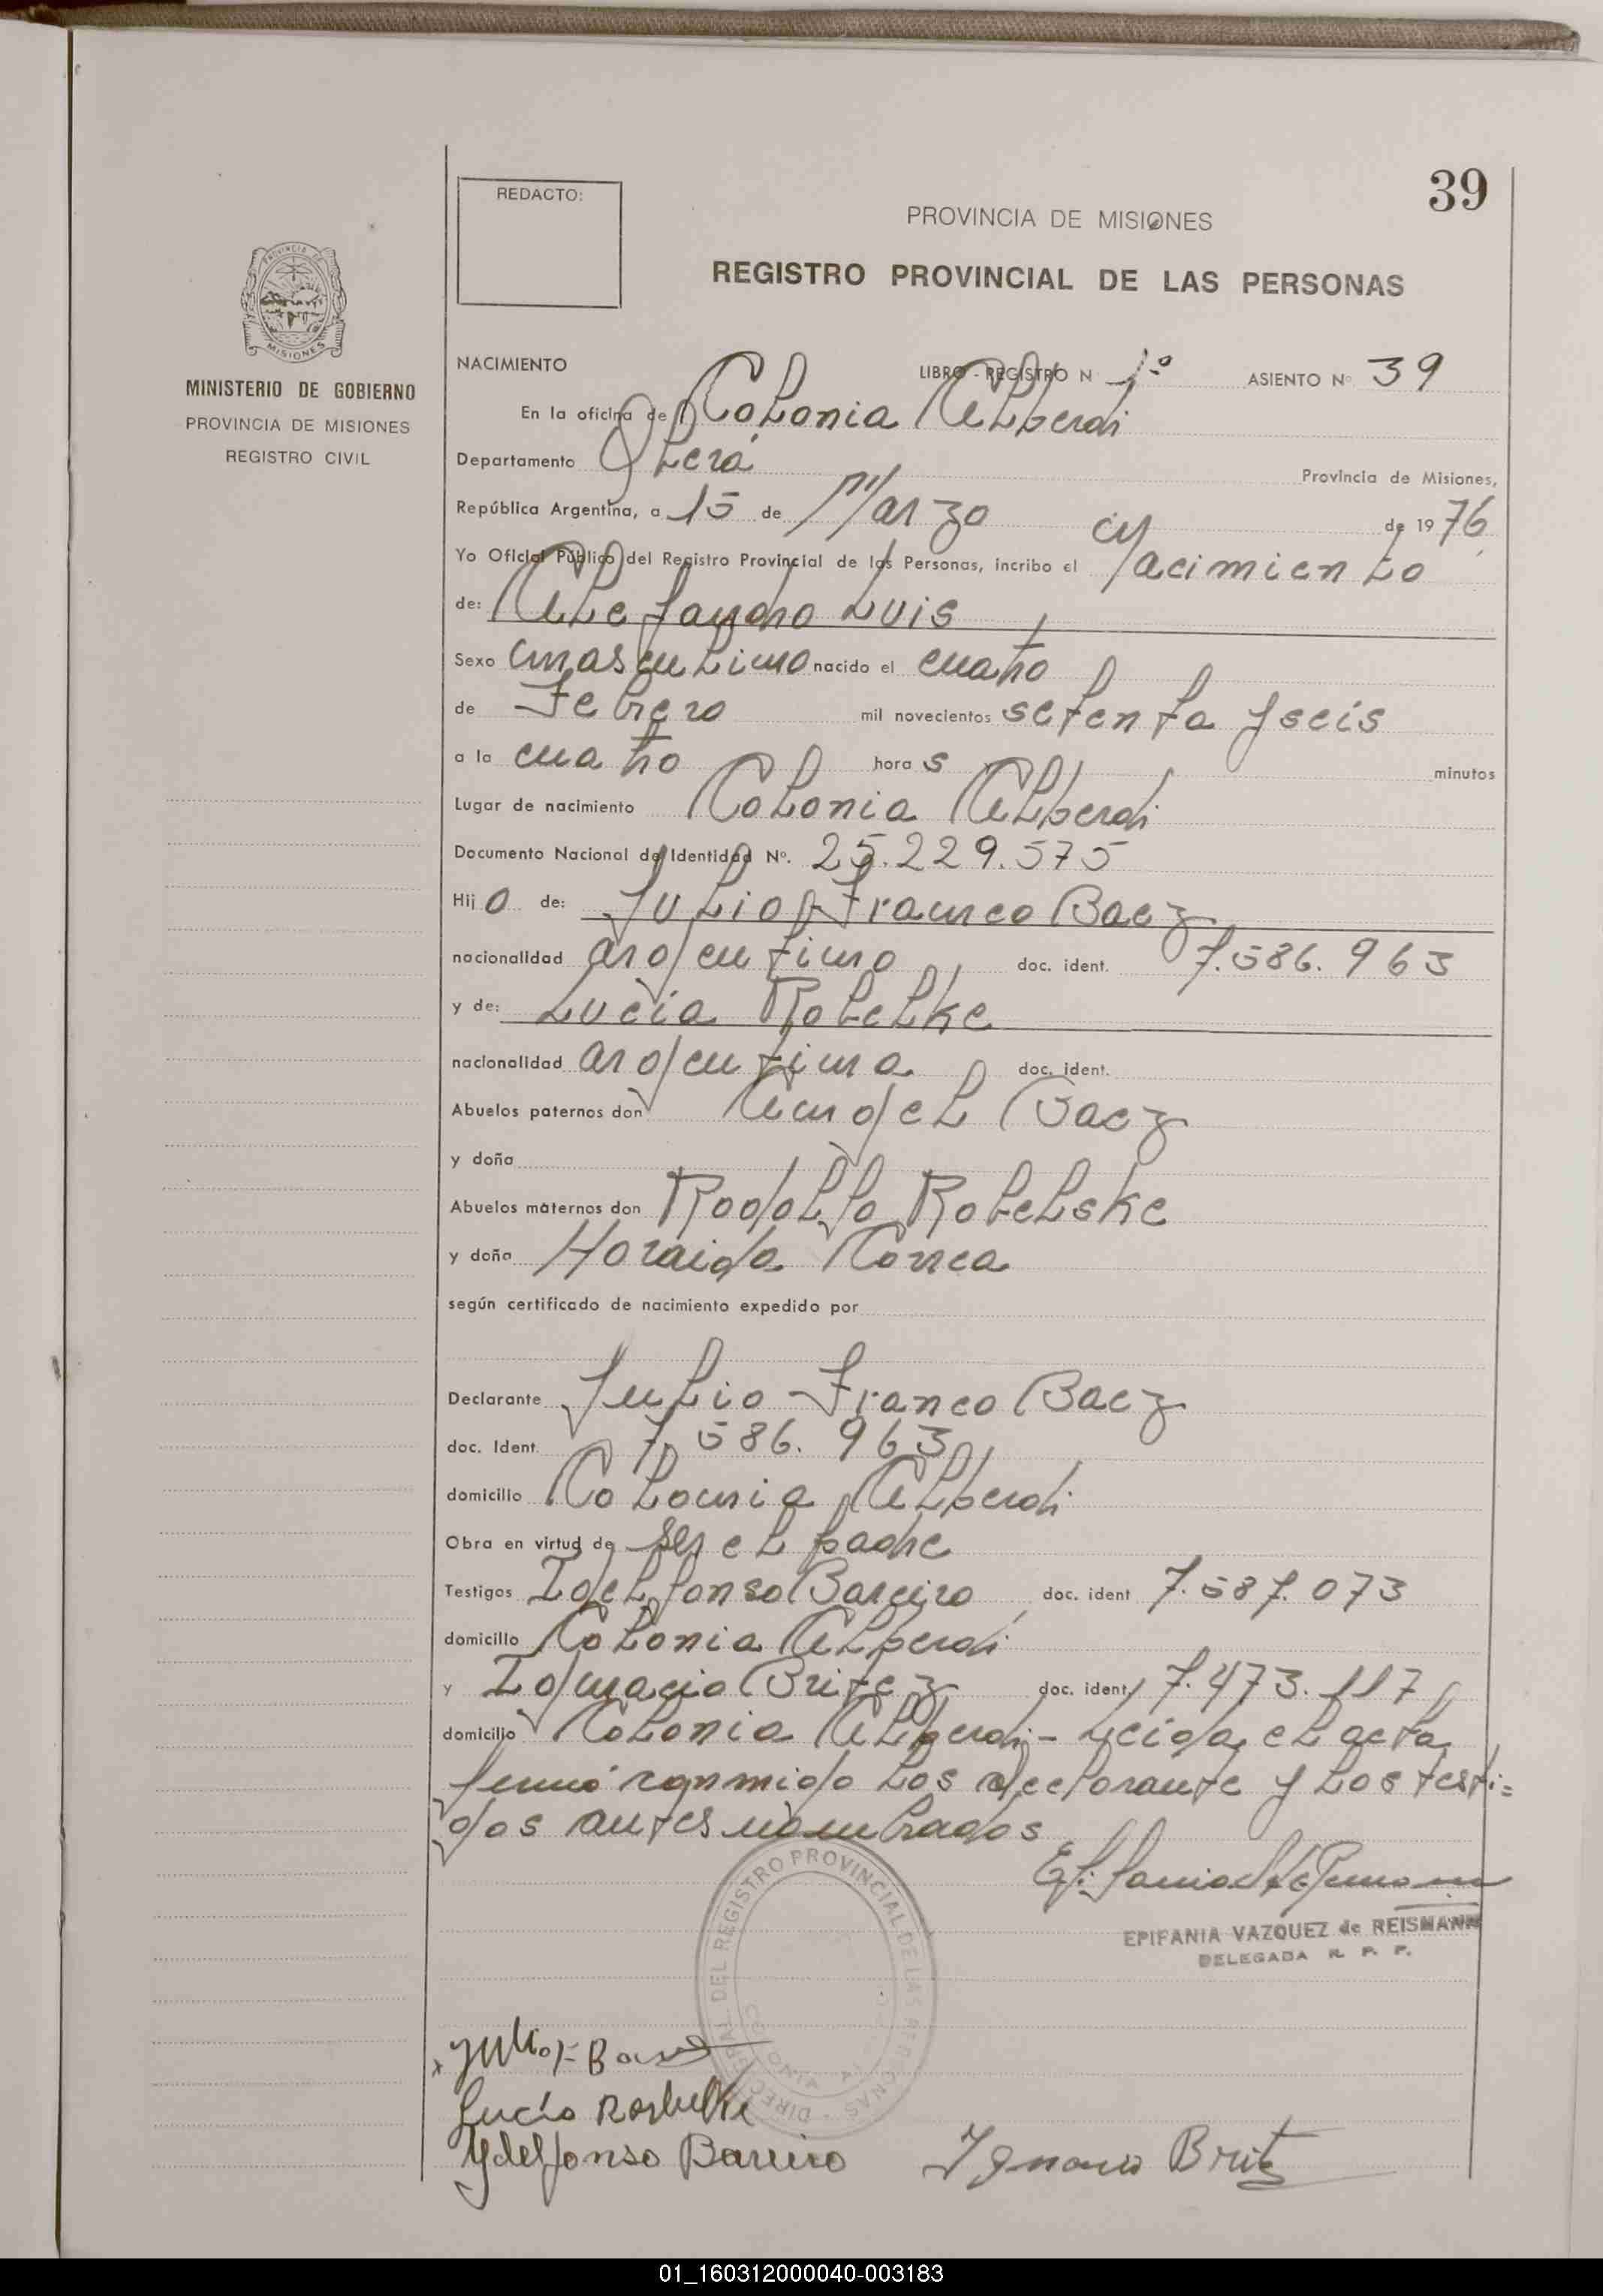 39
REDACTO:
PROVINCIA DE MISIONES
REGISTRO PROVINCIAL DE LAS PERSONAS
PROVINCIA DE
MISIONES
MINISTERIO DE GOBIERNO
PROVINCIA DE MISIONES
REGISTRO CIVIL
NACIMIENTO LIBRO - REGISTRO N 1º ASIENTO Nº 39
En la oficina de Colonia Alberdi
Departamento Oberá Provincia de Misiones,
República Argentina, a 15 de Marzo de 1976
Yo Oficial Público del Registro Provincial de las Personas, incribo el Nacimiento
de: Alejandro Luis
Sexo masculino nacido el cuatro
de Febrero mil novecientos setenta y seis
a la cuatro hora s minutos
Lugar de nacimiento Colonia Alberdi
Documento Nacional de Identidad Nº. 25.229.575
Hij o de: Julio Franco Baez
nacionalidad argentino doc. ident. 7.586.963
y de: Lucia Robelke
nacionalidad argentina doc. ident.
Abuelos paternos don Angel Baez
y doña
Abuelos maternos don Rodolfo Robelske
y doña Horaida Correa
según certificado de nacimiento expedido por
Declarante Julio Franco Baez
doc. Ident. 7.586.963
domicilio Colonia Alberdi
Obra en virtud de ser el padre
Testigos Idelfonso Bareiro doc. ident 7.587.073
domicilio Colonia Alberdi
y Ignacio Britez doc. ident. 7.473.117
domicilio Colonia Alberdi - Leida el acta
firmó conmigo los declorante y los testi=
gos antes nombrados
EPIFANIA VAZQUEZ de REISMANN
DELEGADA R. P. P.
DIRECC GRAL. DEL REGISTRO PROVINCIAL DE LAS PERSONAS
x Julio F Baez
Lucia
Ydelfonso Barreiro Ignacio Britez
01_160312000040-003183